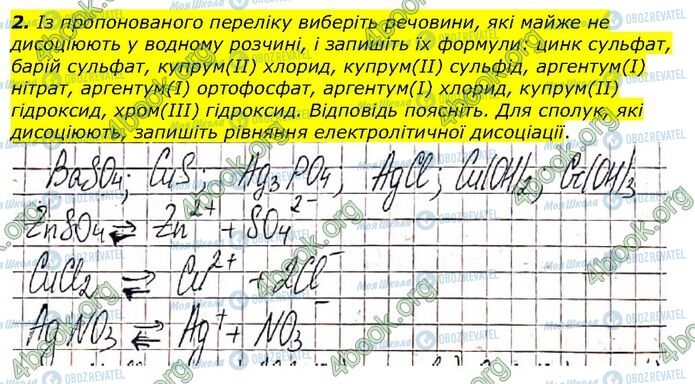 2. Із пропонованого переліку виберіть речовини, які майже не
дисоціюють у водному розчині, і запишіть їх формули: цинк сульфат,
барій сульфат, купрум(ІІ) хлорид, купрум(ІІ) сульфід, аргентум(І)
нітрат, аргентум(І) ортофосфат, аргентум(І) хлорид, купрум(ІІ)
гідроксид, хром(ІІІ) гідроксид. Відповідь поясніть. Для сполук, які
дисоціюють, запишіть рівняння електролітичної дисоціації.
BaSO4; CuS; Ag3PO4, AgCl; Cu(OH)2, Cr(OH)3
ZnSO4 ⇄ Zn2+ + SO4 2-
CuCl2 ⇄ Cu2+ + 2Cl-
AgNO3 ⇄ Ag+ + NO3-